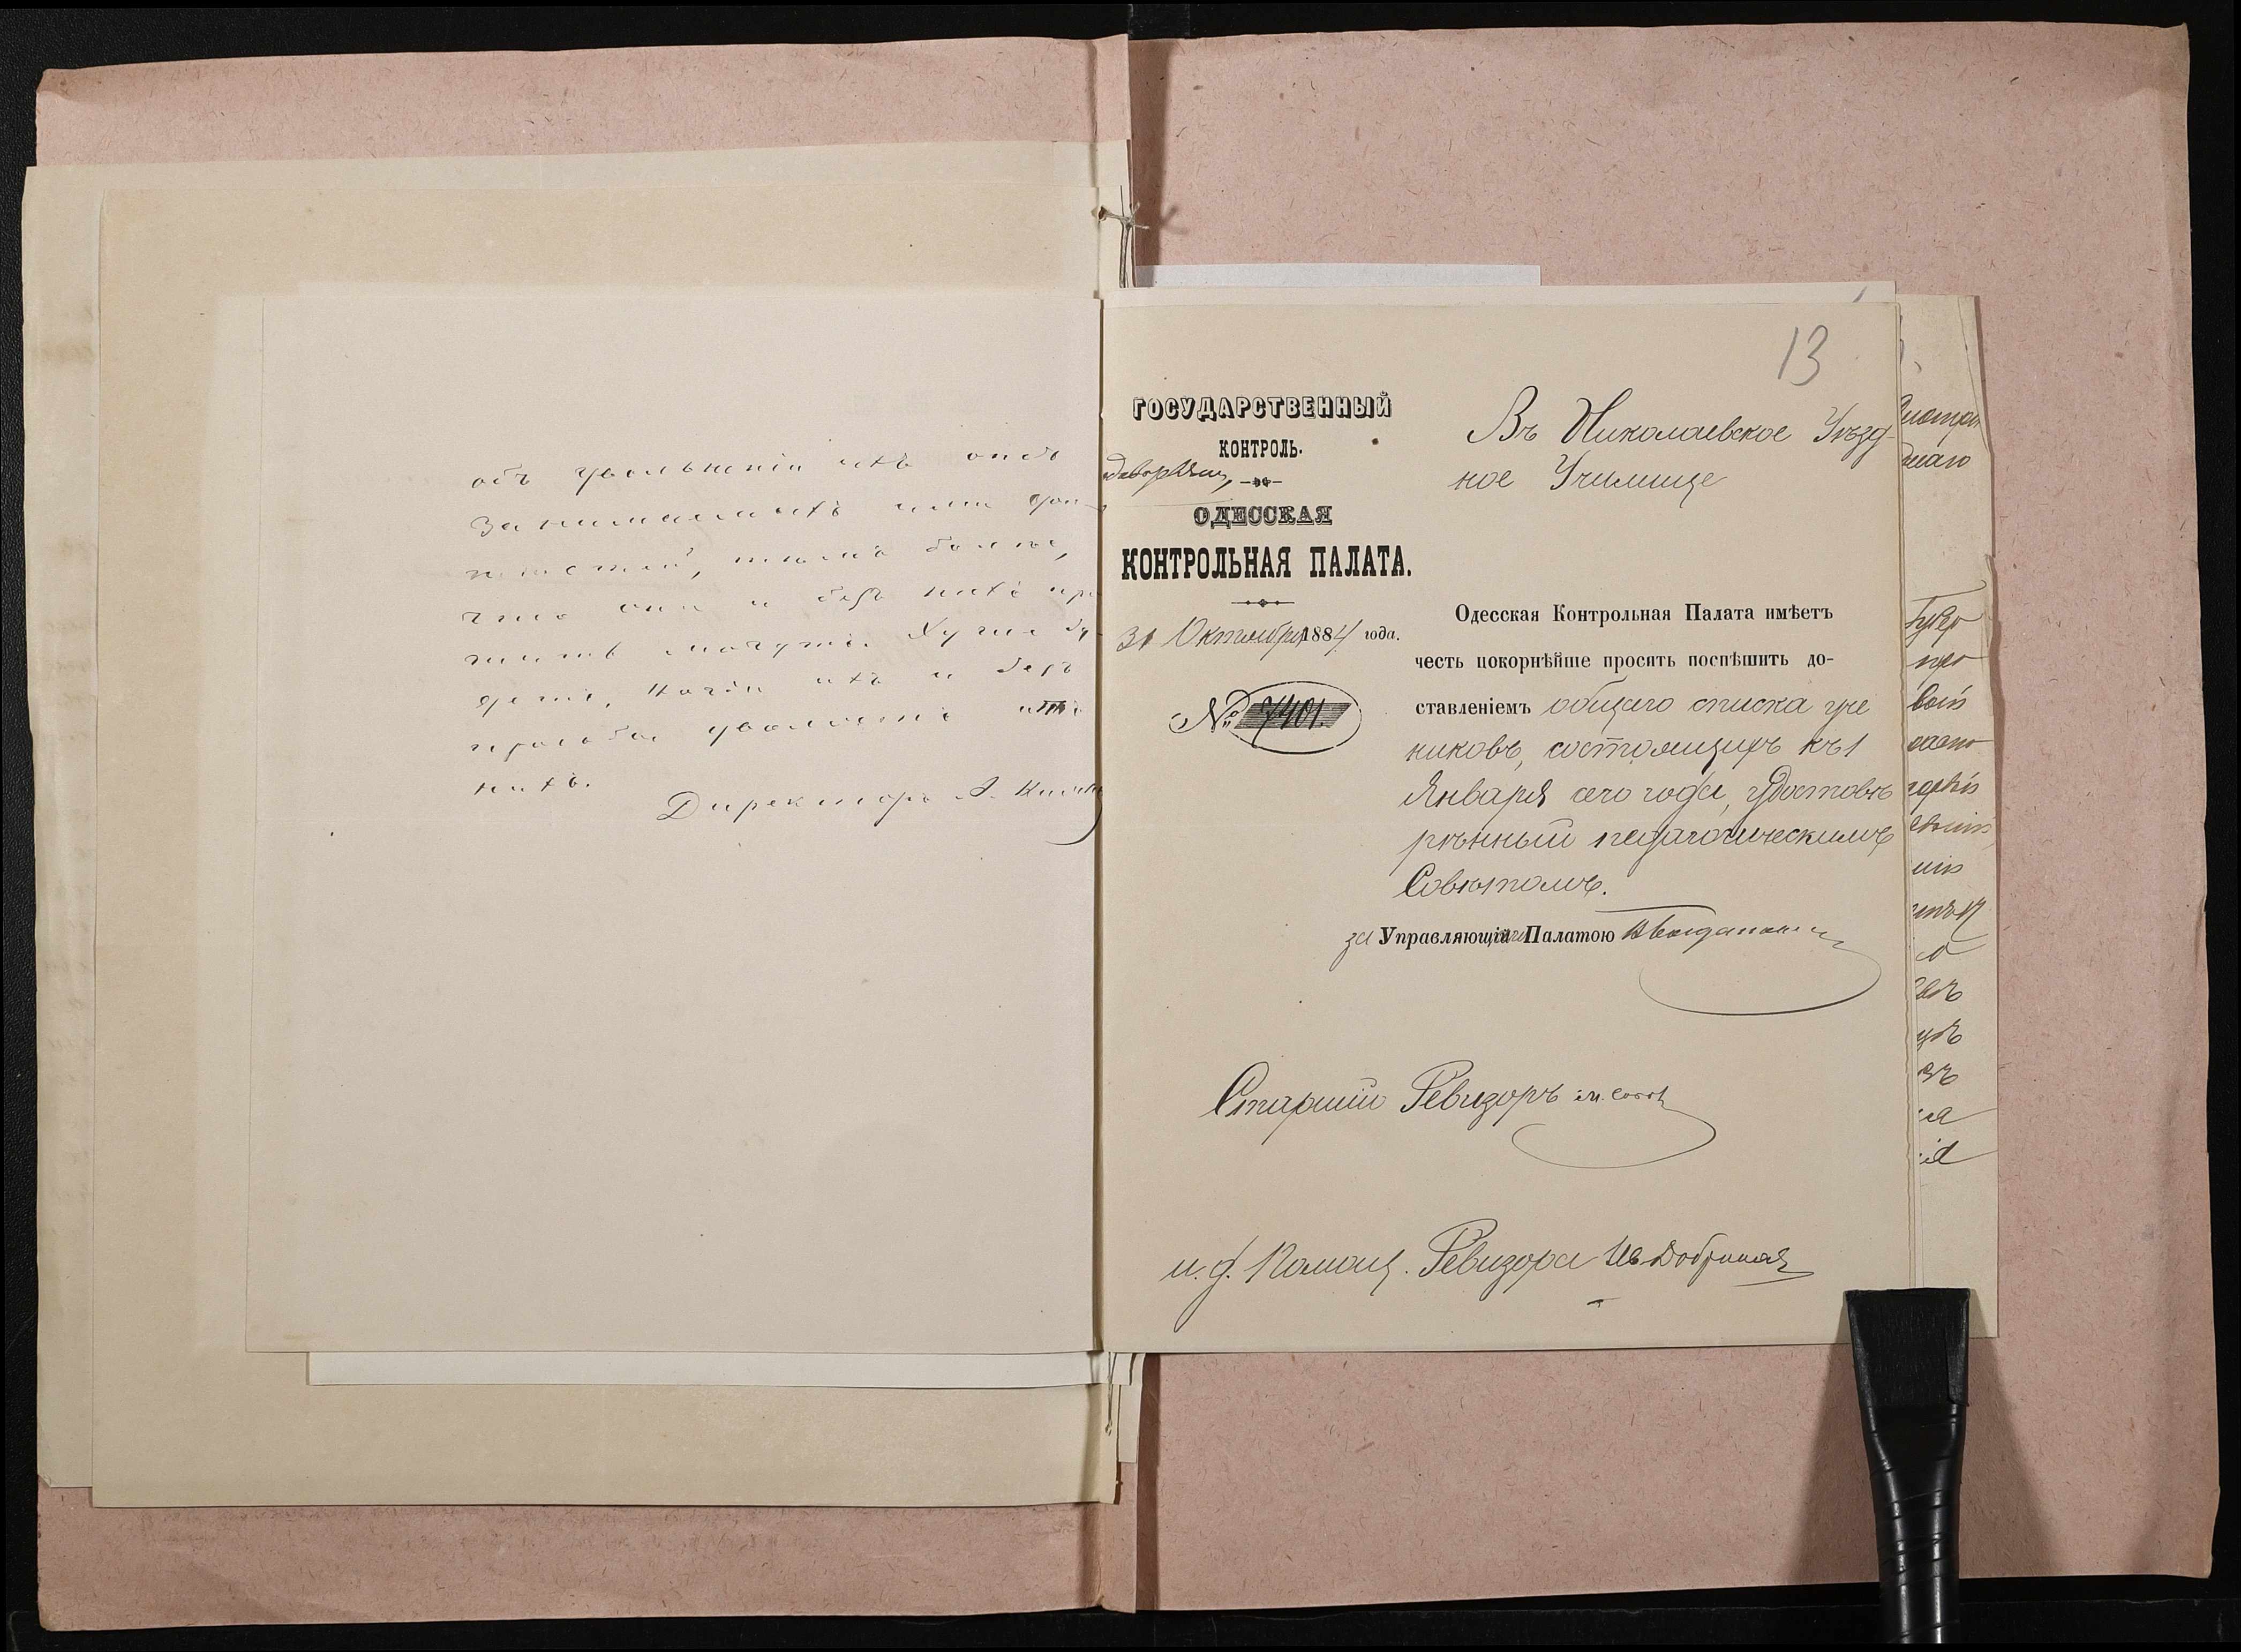 объ увольненіи ихъ отъ
занимаемыхъ ими дол-
жностей, тѣмъ болѣе,
что они и безъ нихъ про
жить могутъ. Хуже бу-
детъ, когда ихъ и безъ
просьбы уволятъ отъ
нихъ.
Директоръ А.
13
ГОСУДАРСТВЕННЫЙ
КОНТРОЛЬ.
ОДЕССКАЯ
КОНТРОЛЬНАЯ ПАЛАТА.
31 Октября 1884 года.
№ 7401.
Въ Николаевское Уѣзд-
ное Училище
Одесская Контрольная Палата имѣетъ
честь покорнѣйше просить поспѣшить до-
ставленіемъ общаго списка уче
никовъ, состоящихъ къ 1
Января сего года, удостовѣ
рѣнный педагогическимъ
Совѣтомъ.
за Управляющій Палатою
Старшій Ревизоръ
и. д. Помощ. Ревизора